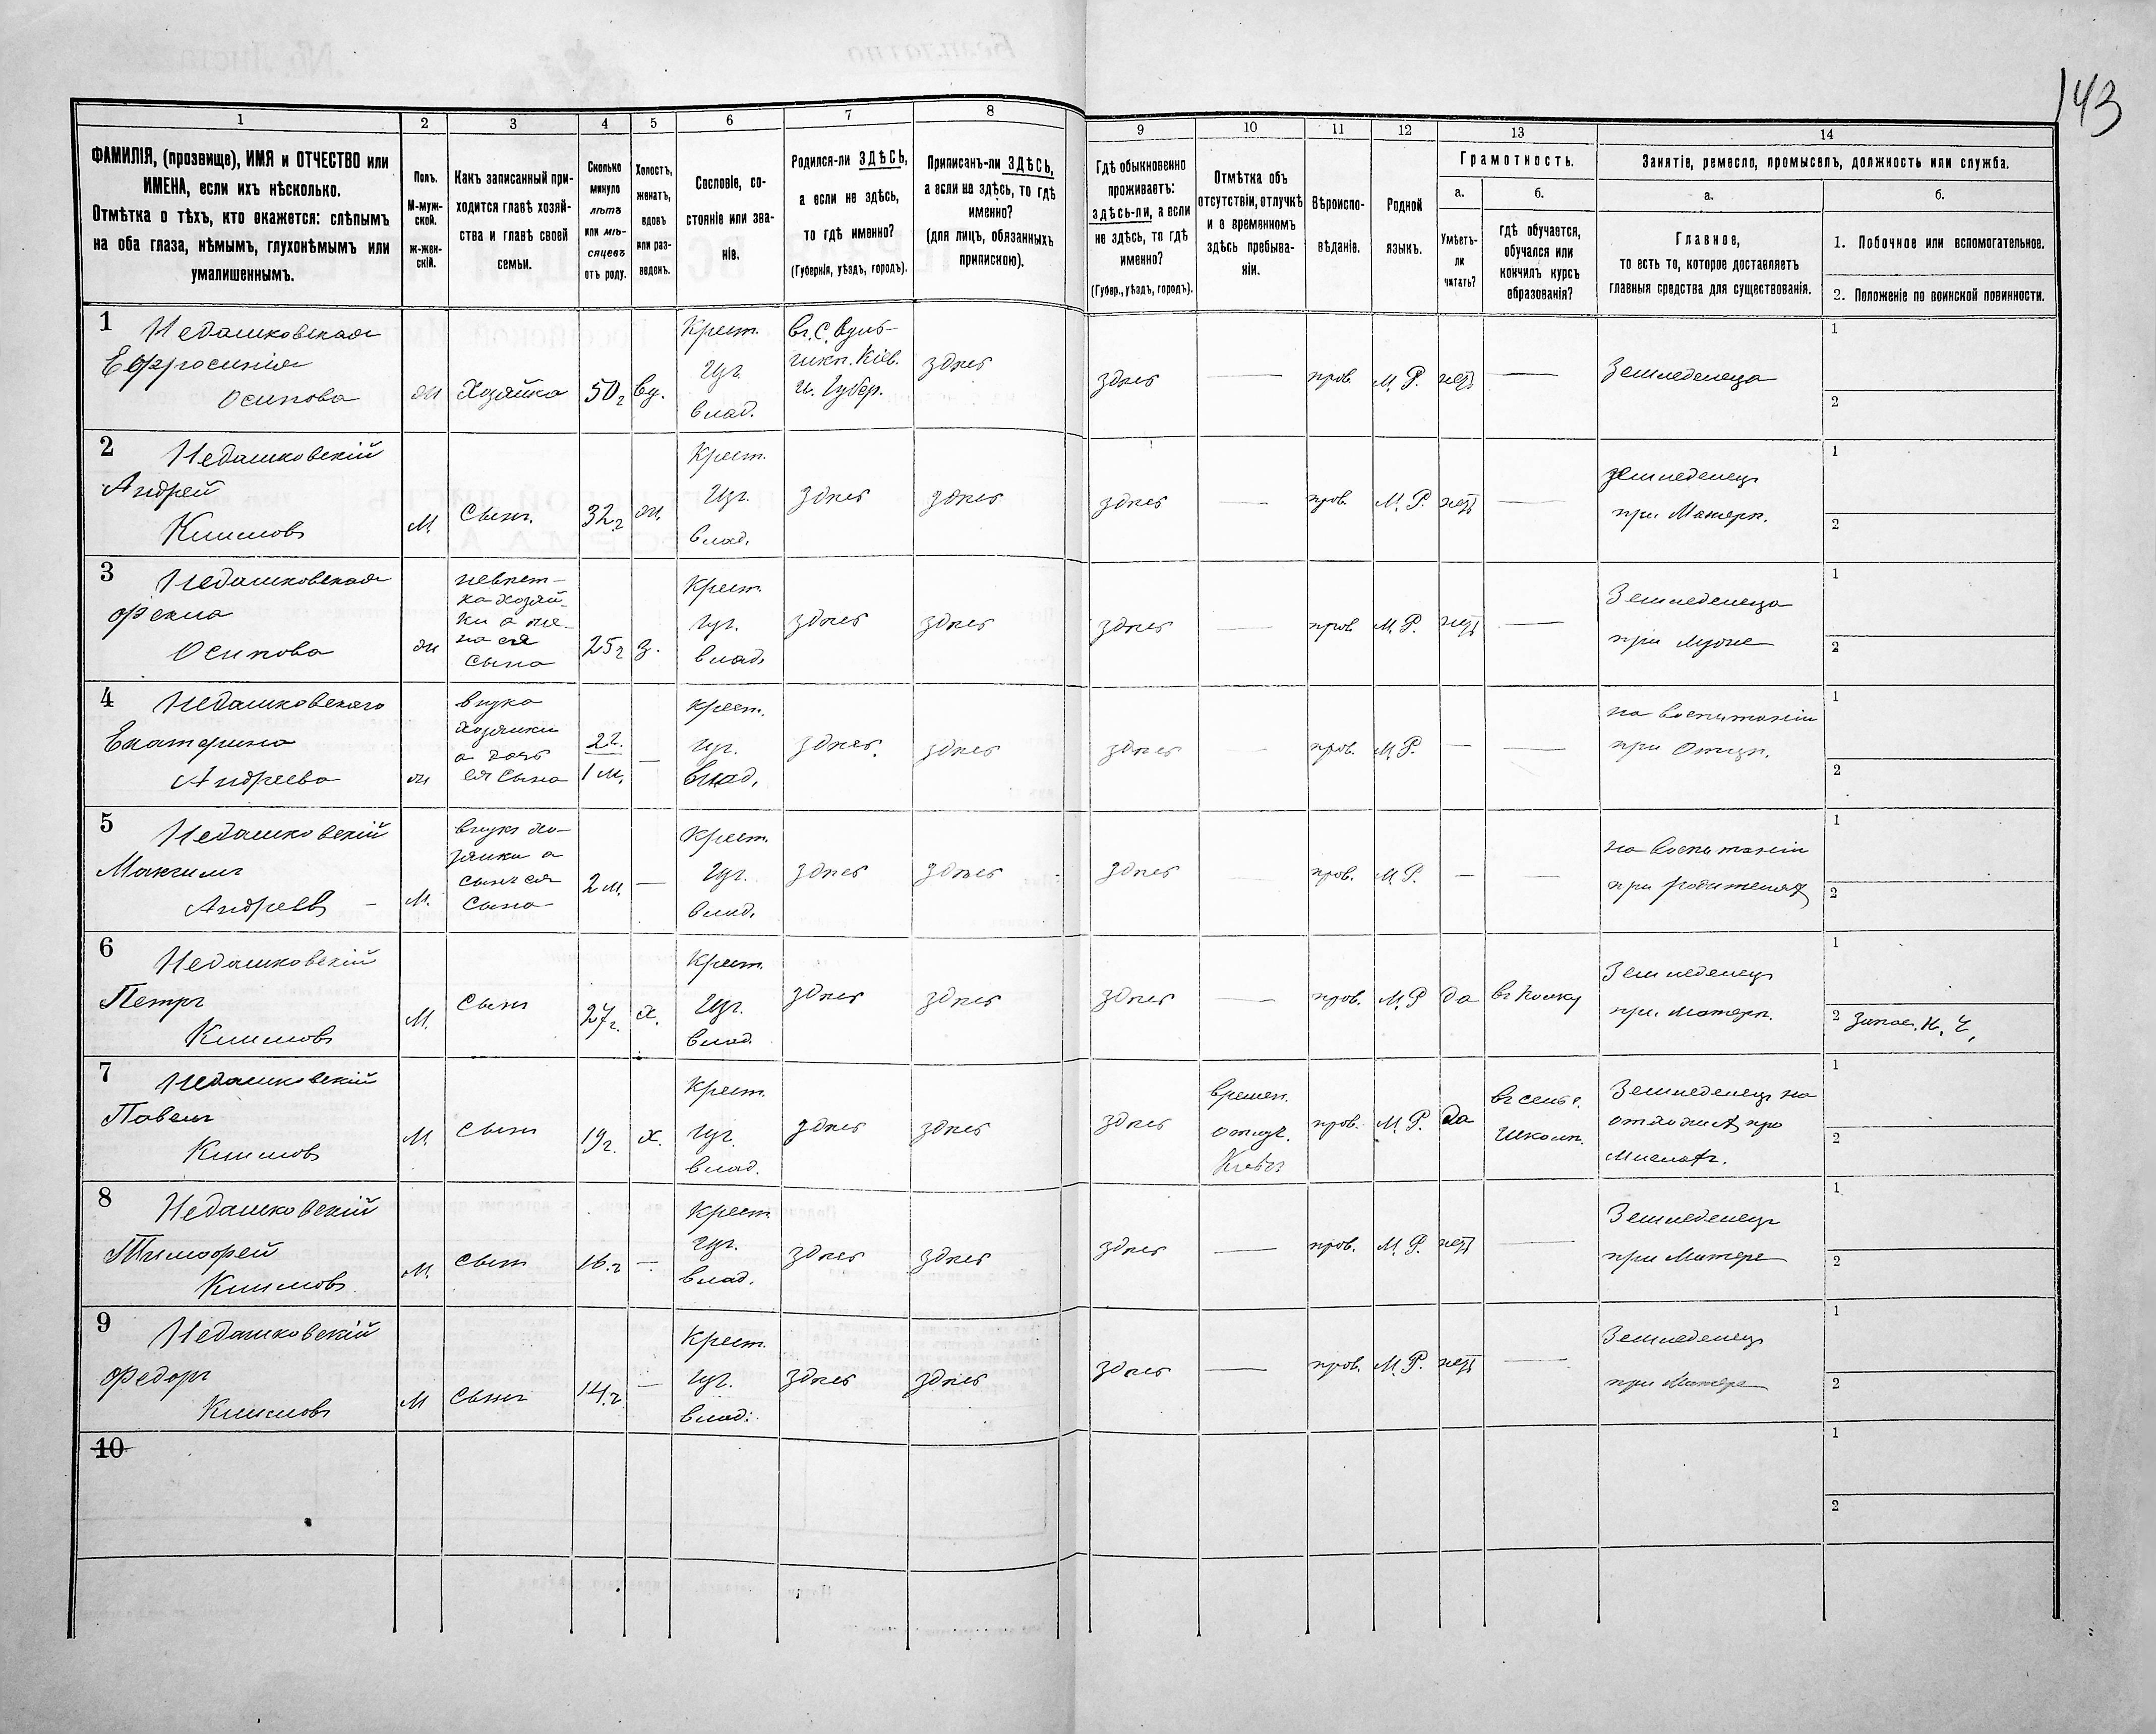 143
1 2 3 4 5 6 7 8 9 10 11 12 13 14
ФАМИЛІЯ, (прозвище), ИМЯ и ОТЧЕСТВО или
ИМЕНА, если ихъ нѣсколько.
Отмѣтка о тѣхъ, кто окажется: слѣпымъ
на оба глаза, нѣмымъ, глухонѣмымъ или
умалишеннымъ.
Полъ.
М-муж-
ской.
ж-жен-
скій.
Какъ записанный при-
ходится главѣ хозяй-
ства и главѣ своей
семьи.
Сколько
минуло
лѣтъ
или мѣ-
сяцевъ
отъ роду.
Холостъ,
женатъ,
вдовъ
или раз-
веденъ.
Сословіе, со-
стояніе или зва-
ніе.
Родился-ли ЗДѢСЬ,
а если не здѣсь,
то гдѣ именно?
(Губернія, уѣздъ, городъ).
Приписанъ-ли ЗДѢСЬ,
а если не здѣсь, то гдѣ
именно?
(для лицъ, обязанныхъ
припискою).
Гдѣ обыкновенно
проживаетъ:
здѣсь-ли, а если
не здѣсь, то гдѣ
именно?
(Губер., уѣздъ, городъ).
Отмѣтка объ
отсутствіи, отлучкѣ
и о временномъ
здѣсь пребыва-
ніи.
Вѣроиспо-
вѣданіе.
Родной
языкъ.
Грамотность.
а.
Умѣетъ-
ли
читать?
б.
гдѣ обучается,
обучался или
кончилъ курсъ
образованія?
Занятіе, ремесло, промыселъ, должность или служба.
а.
Главное,
то есть то, которое доставляетъ
главныя средства для существованія.
б.
1. Побочное или вспомогательное.
2. Положеніе по воинской повинности.
1 Недашковская
Ефросинія
Осипова
ж
Хозяйка
50 г
вд.
Крест.
изъ
влад.
Кіев.
Губер.
здѣсь
здѣсь
—
прав.
М. Р.
нѣтъ
—
Земледелеца
1
2
2 Недашковскій
Андрей
Климовъ
М.
Сынъ.
32 г
ж.
Крест.
изъ
влад.
здѣсь
здѣсь
здѣсь
—
прав.
М. Р.
нѣтъ
—
земледелецъ
при Матери.
1
2
3 Недашковская
Фекла
Осипова
ж
невѣст-
ка хозяй-
ки а же-
на ея
сына
25 г
з.
Крест.
изъ
влад.
здѣсь
здѣсь
здѣсь
—
прав
М. Р.
нѣтъ
—
Земледелеца
при муже
1
2
4 Недашковского
Екатерина
Андреева
ж
внука
хозяики
а дочь
ея сына
2 г.
1 м.
—
Крест.
изъ
влад.
здѣсь.
здѣсь
здѣсь
—
прав.
М. Р.
—
—
на воспитаніи
при Отцѣ.
1
2
5 Недашковскій
Максимъ
Андреевъ
М.
внукъ хо-
зяики а
сынъ ея
сына
2 м.
—
Крест.
изъ
влад.
здѣсь
здѣсь
здѣсь
—
прав.
М. Р.
—
—
на воспитаніи
при родителяхъ
1
2
6 Недашковскій
Петръ
Климовъ
М.
Сынъ
27 г.
х.
Крест.
изъ
влад.
здѣсь
здѣсь
здѣсь
—
прав.
М. Р
да
въ полку
Земледелецъ
при матери.
1
2 Запас. Н. Ч.
7 Недашковскій
Павелъ
Климовъ
М.
Сынъ
19 г.
х.
Крест.
изъ
влад.
здѣсь
здѣсь
здѣсь
времен.
отлуч.
Кіевъ
прав.
М. Р.
да
въ сельс.
школѣ.
Земледелецъ на
1
2
8 Недашковскій
Тимофей
Климовъ
М.
Сынъ
16. г
—
Крест
изъ
влад.
здѣсь
здѣсь
здѣсь
—
прав.
М. Р.
нѣтъ
—
Земледелецъ
при Матере
1
2
9 Недашковскій
Федоръ
Климовъ
М
Сынъ
14. г
—
Крест.
изъ
влад.
здѣсь
здѣсь
здѣсь
—
прав.
М. Р.
нѣтъ
—
Земледелецъ
при Матере
1
2
10
1
2